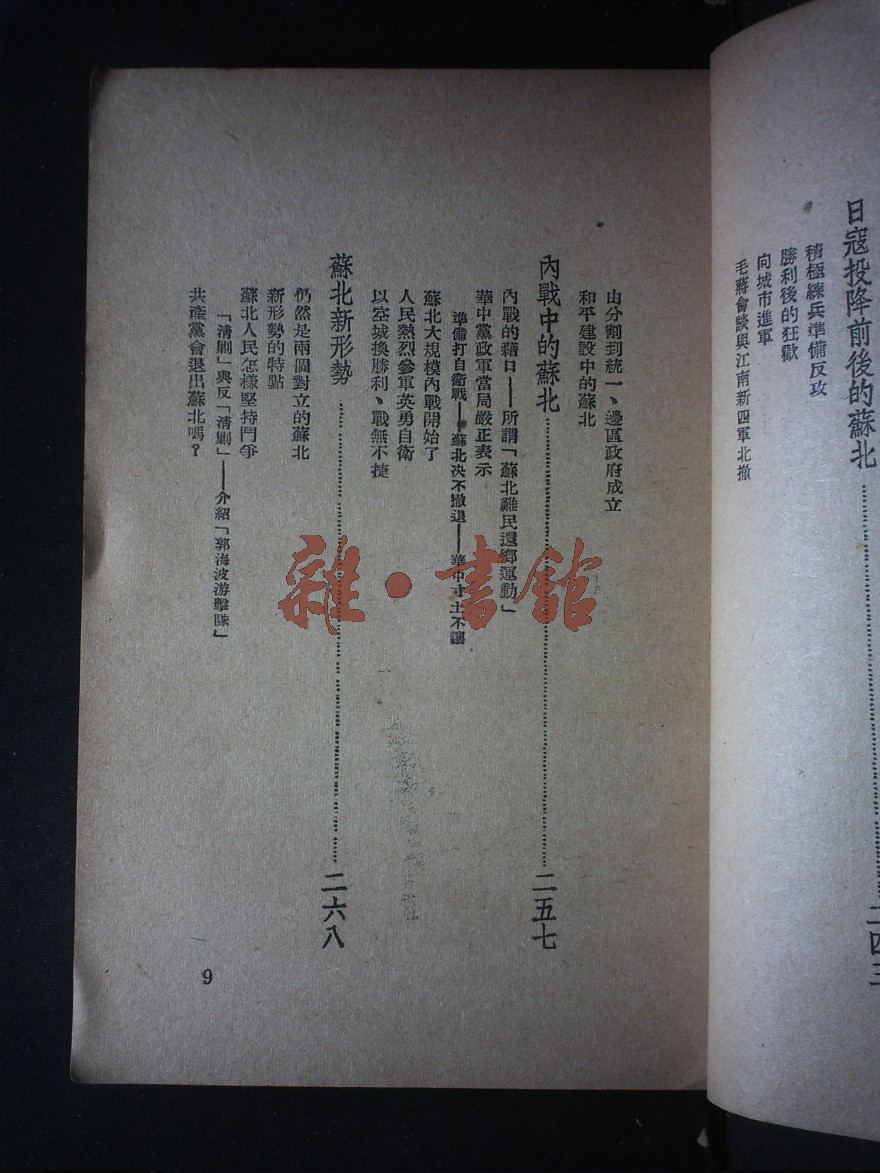 日寇投降前後的蘇北……二四三
積極練兵準備反攻
勝利後的狂歡
向城市進軍
毛蔣會談與江南新四軍北撤
由分割到統一、邊區政府成立
和平建設中的蘇北
內戰中的蘇北……二五七
內戰的藉口——所謂「蘇北難民還鄉運動」
華中黨政軍當局嚴正表示
準備打自衛戰——蘇北決不撤退——華中寸土不讓
蘇北大規模內戰開始了
人民熱烈參軍英勇自衛
以空城換勝利、戰無不捷
蘇北新形勢……二六八
仍然是兩個對立的蘇北
新形勢的特點
蘇北人民怎樣堅持鬥爭
「清剿」與反「清剿」——介紹「郭海波游擊隊」
共產黨會退出蘇北嗎?
9
雜·書館